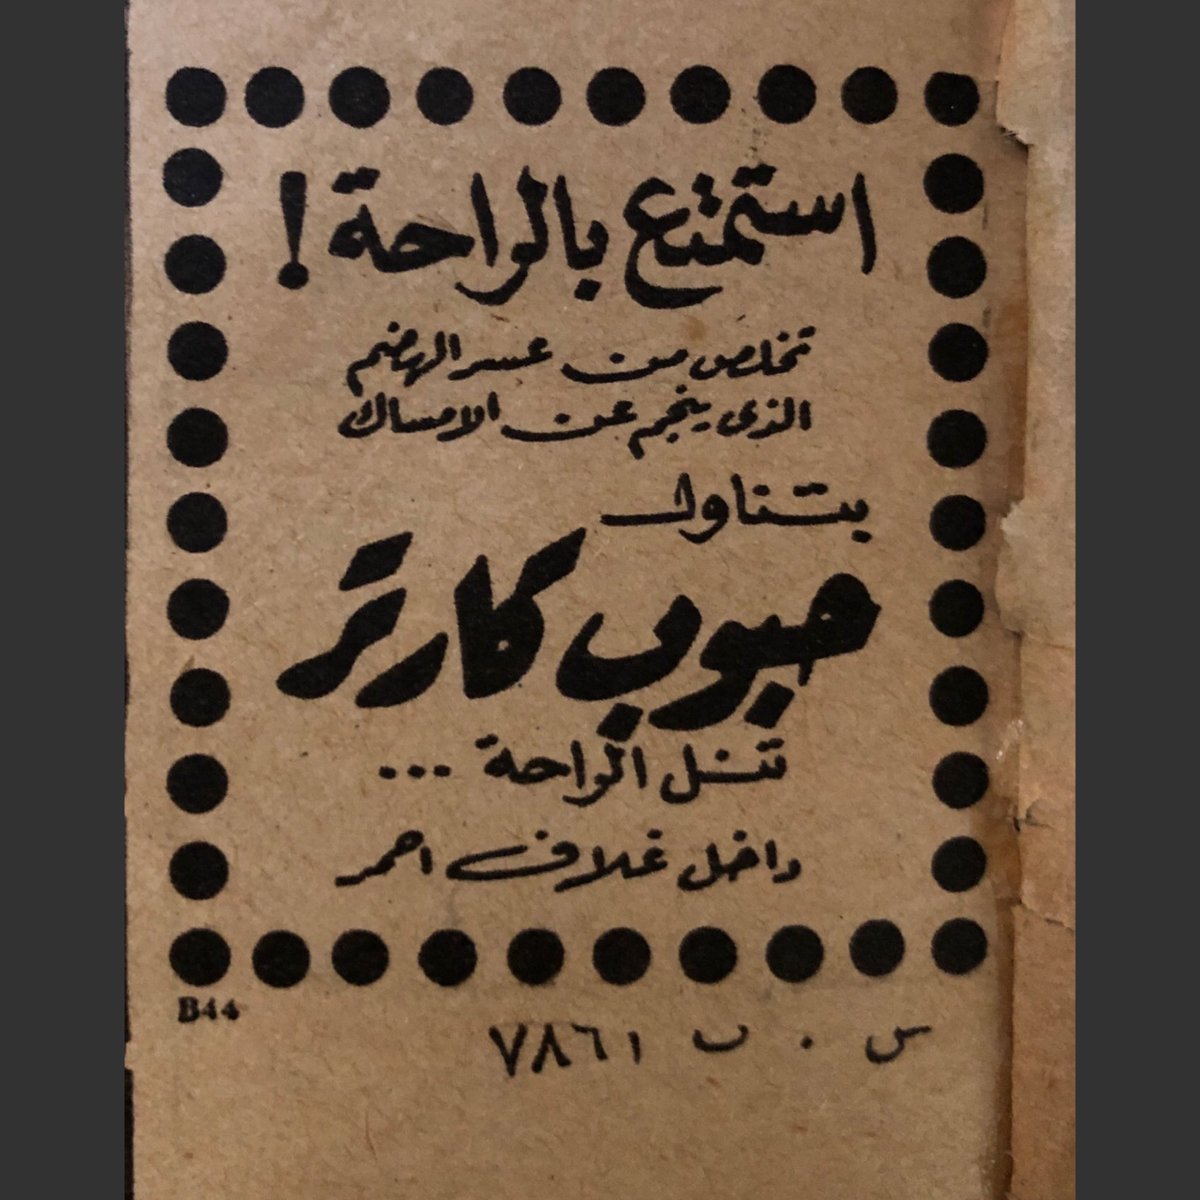 استمتع بالراحة !
تخلص من عسر الهضم
الذى ينجم عن الامساك
بتناول
حبوب كارتر
تنل الراحة ...
داخل غلاف احمر
B44
س . ت ٧٨٦١